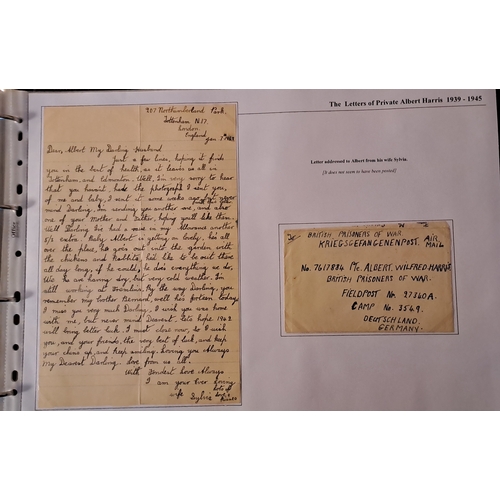 The Letters of Private Albert Harris 1939 - 1945
207 Northumberland Park,
Tottenham N17.
London
England
Dear, Albert My Darling Husband
Just a few lines, hoping it finds
you in the best of health, as it leaves us all in
Tottenham, and Edmonton. Well, I'm very sorry to hear
that you haven't, had the photograph I sent you,
of me and baby, I sent it some weeks ago, but never
mind Darling. I'm sending you another one, and also
one of your Mother and Sister, hoping you'll like them.
Well Darling I've had a raise in my Allowance another
5/s extra. Baby Albert is getting on lovely, he's all
over the place, he goes out into the garden with
the chickens and Rabbits, he'd like to be out there
all day long, if he could, he does everything we do,
We are having dry, but very cold weather. I'm
still working at By the way Darling, you
remember my brother Bernard, well he's forteen today,
I miss you very much Darling, I wish you was home
with me, but never mind Dearest, let's hope 1943
will bring better luck. I must close now, so I wish
you, and your friends, the very best of luck, and keep
your chins up, and keep smiling. Loving you Always
My Dearest Darling. love from us all.
With Tenderest Love Always
I am your Ever Loving
wife Sylvia
Letter addressed to Albert from his wife Sylvia.
[It does not seem to have been posted]
BRITISH PRISONERS OF WAR
KRIEGSGEFANGENENPOST. AIR MAIL
No. 7617834 Pte. ALBERT. WILFRED HARRIS
BRITISH PRISONERS OF WAR.
FIELDPOST No. 27360A.
CAMP No. 3569.
DEUTSCHLAND.
GERMANY.